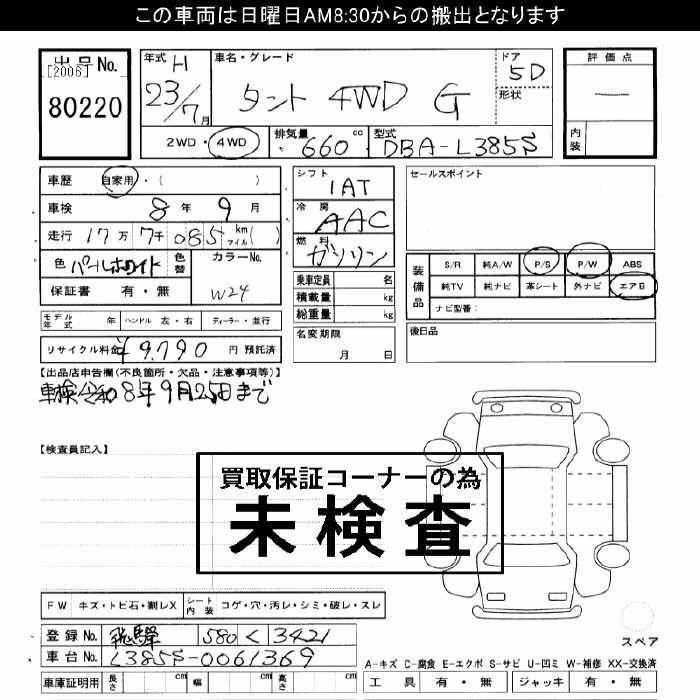 この車両は日曜日AM8:30からの搬出となります
出品No.
[2006]
80220
年式 H 23/7月
車名・グレード
タント 4WD G
ドア 5D
形状
評価点
—
内装
2WD・4WD
排気量 660 cc
型式 DBA-L385S
車歴 自家用・( )
車検 8年 9月
走行 17万 7千 085 kmマイル( )
色 パールホワイト 色替
カラーNo. W24
保証書 有・無
シフト 1AT
冷房 AAC
燃料 ガソリン
乗車定員 名
積載量 kg
総重量 kg
セールスポイント
装備品
S/R 純A/W P/S P/W ABS
純TV 純ナビ 革シート 外ナビ エアB
ナビ型番:
モデル年式 年 ハンドル 左・右 ディーラー・並行
リサイクル料金 ¥9,790 円 預託済
名変期限 月 日
後日品
【出品店申告欄(不良箇所・欠品・注意事項等)】
車検令和8年9月25日まで
【検査員記入】
買取保証コーナーの為
未検査
FW キズ・トビ石・割レX シート内装 コゲ・穴・汚レ・シミ・破レ・スレ
登録No. 飛騨 580 く 3421
車台No. L385S-0061369
車庫証明用 長さ cm 幅 cm 高さ cm
スペア
A-キズ C-腐食 E-エクボ S-サビ U-凹ミ W-補修 XX-交換済
工具 有・無 ジャッキ 有・無